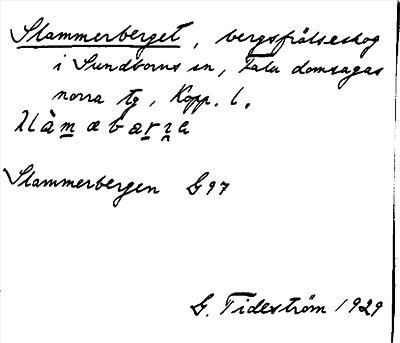 Slammerberget, bergsfrälseskog
i Sundborns sn, Falu domsagas
norra tg, Kopp. l.
Slammerbergen G97
G. Tideström 1929